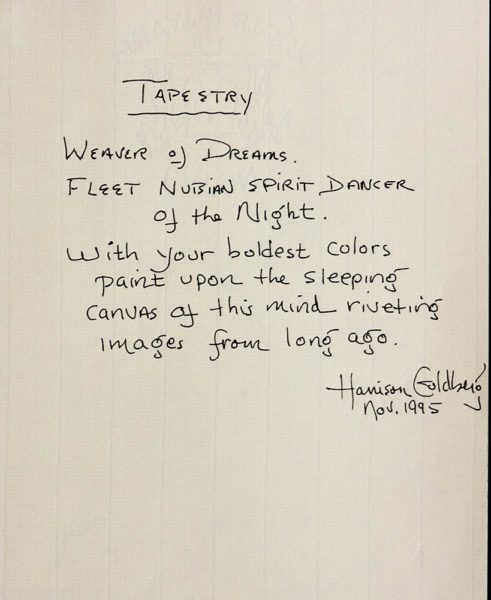 Tapestry
Weaver of Dreams.
Fleet Nubian Spirit Dancer
of the Night.
With your boldest colors
paint upon the sleeping
canvas of this mind riveting
images from long ago.
Harrison Goldberg
Nov. 1995